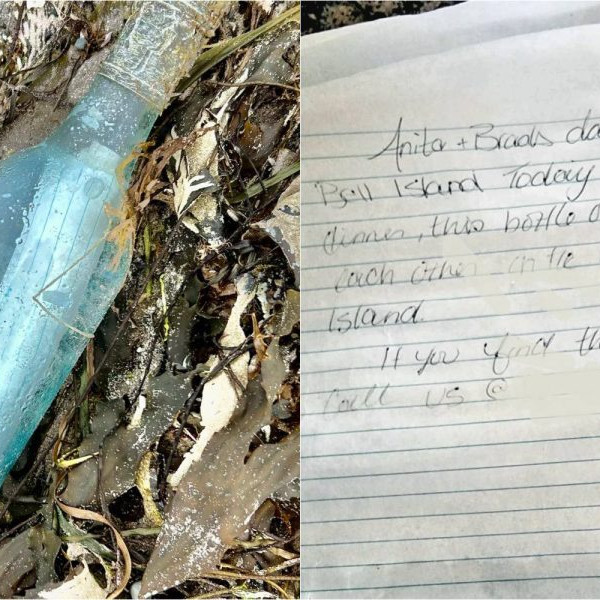 Anita + Brads da
Bell Island Today
dinner, this bottle o
each other on the
Island.
If you find th
Call us @